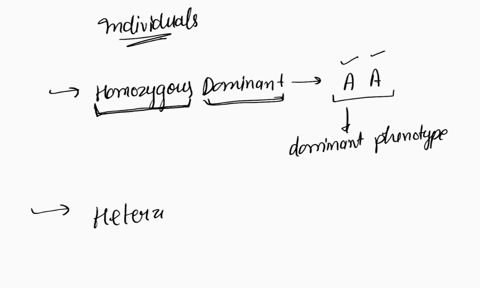 Individuals
→ Homozygous Dominant → A A
dominant phenotype
→ Heterz